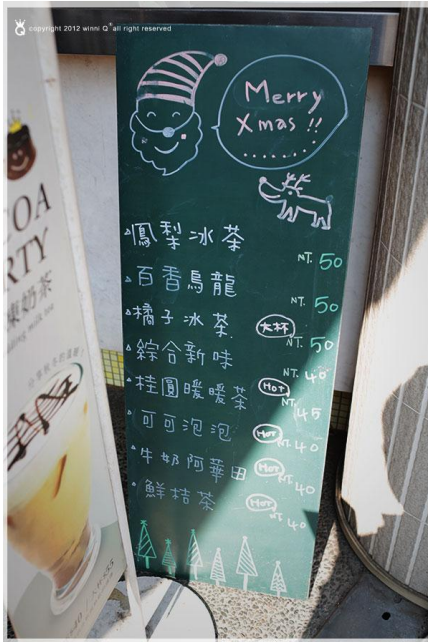 copyright 2012 winni Q all right reserved
Merry
Xmas !!
鳳梨冰茶 NT. 50
百香烏龍 NT. 50
橘子冰茶 大杯 NT. 50
綜合新味 NT. 40
桂圓暖暖茶 Hot NT. 45
可可泡泡 Hot NT. 40
牛奶阿華田 Hot NT. 40
鮮桔茶 Hot NT. 40
COA
RTY
凍奶茶
milk tea